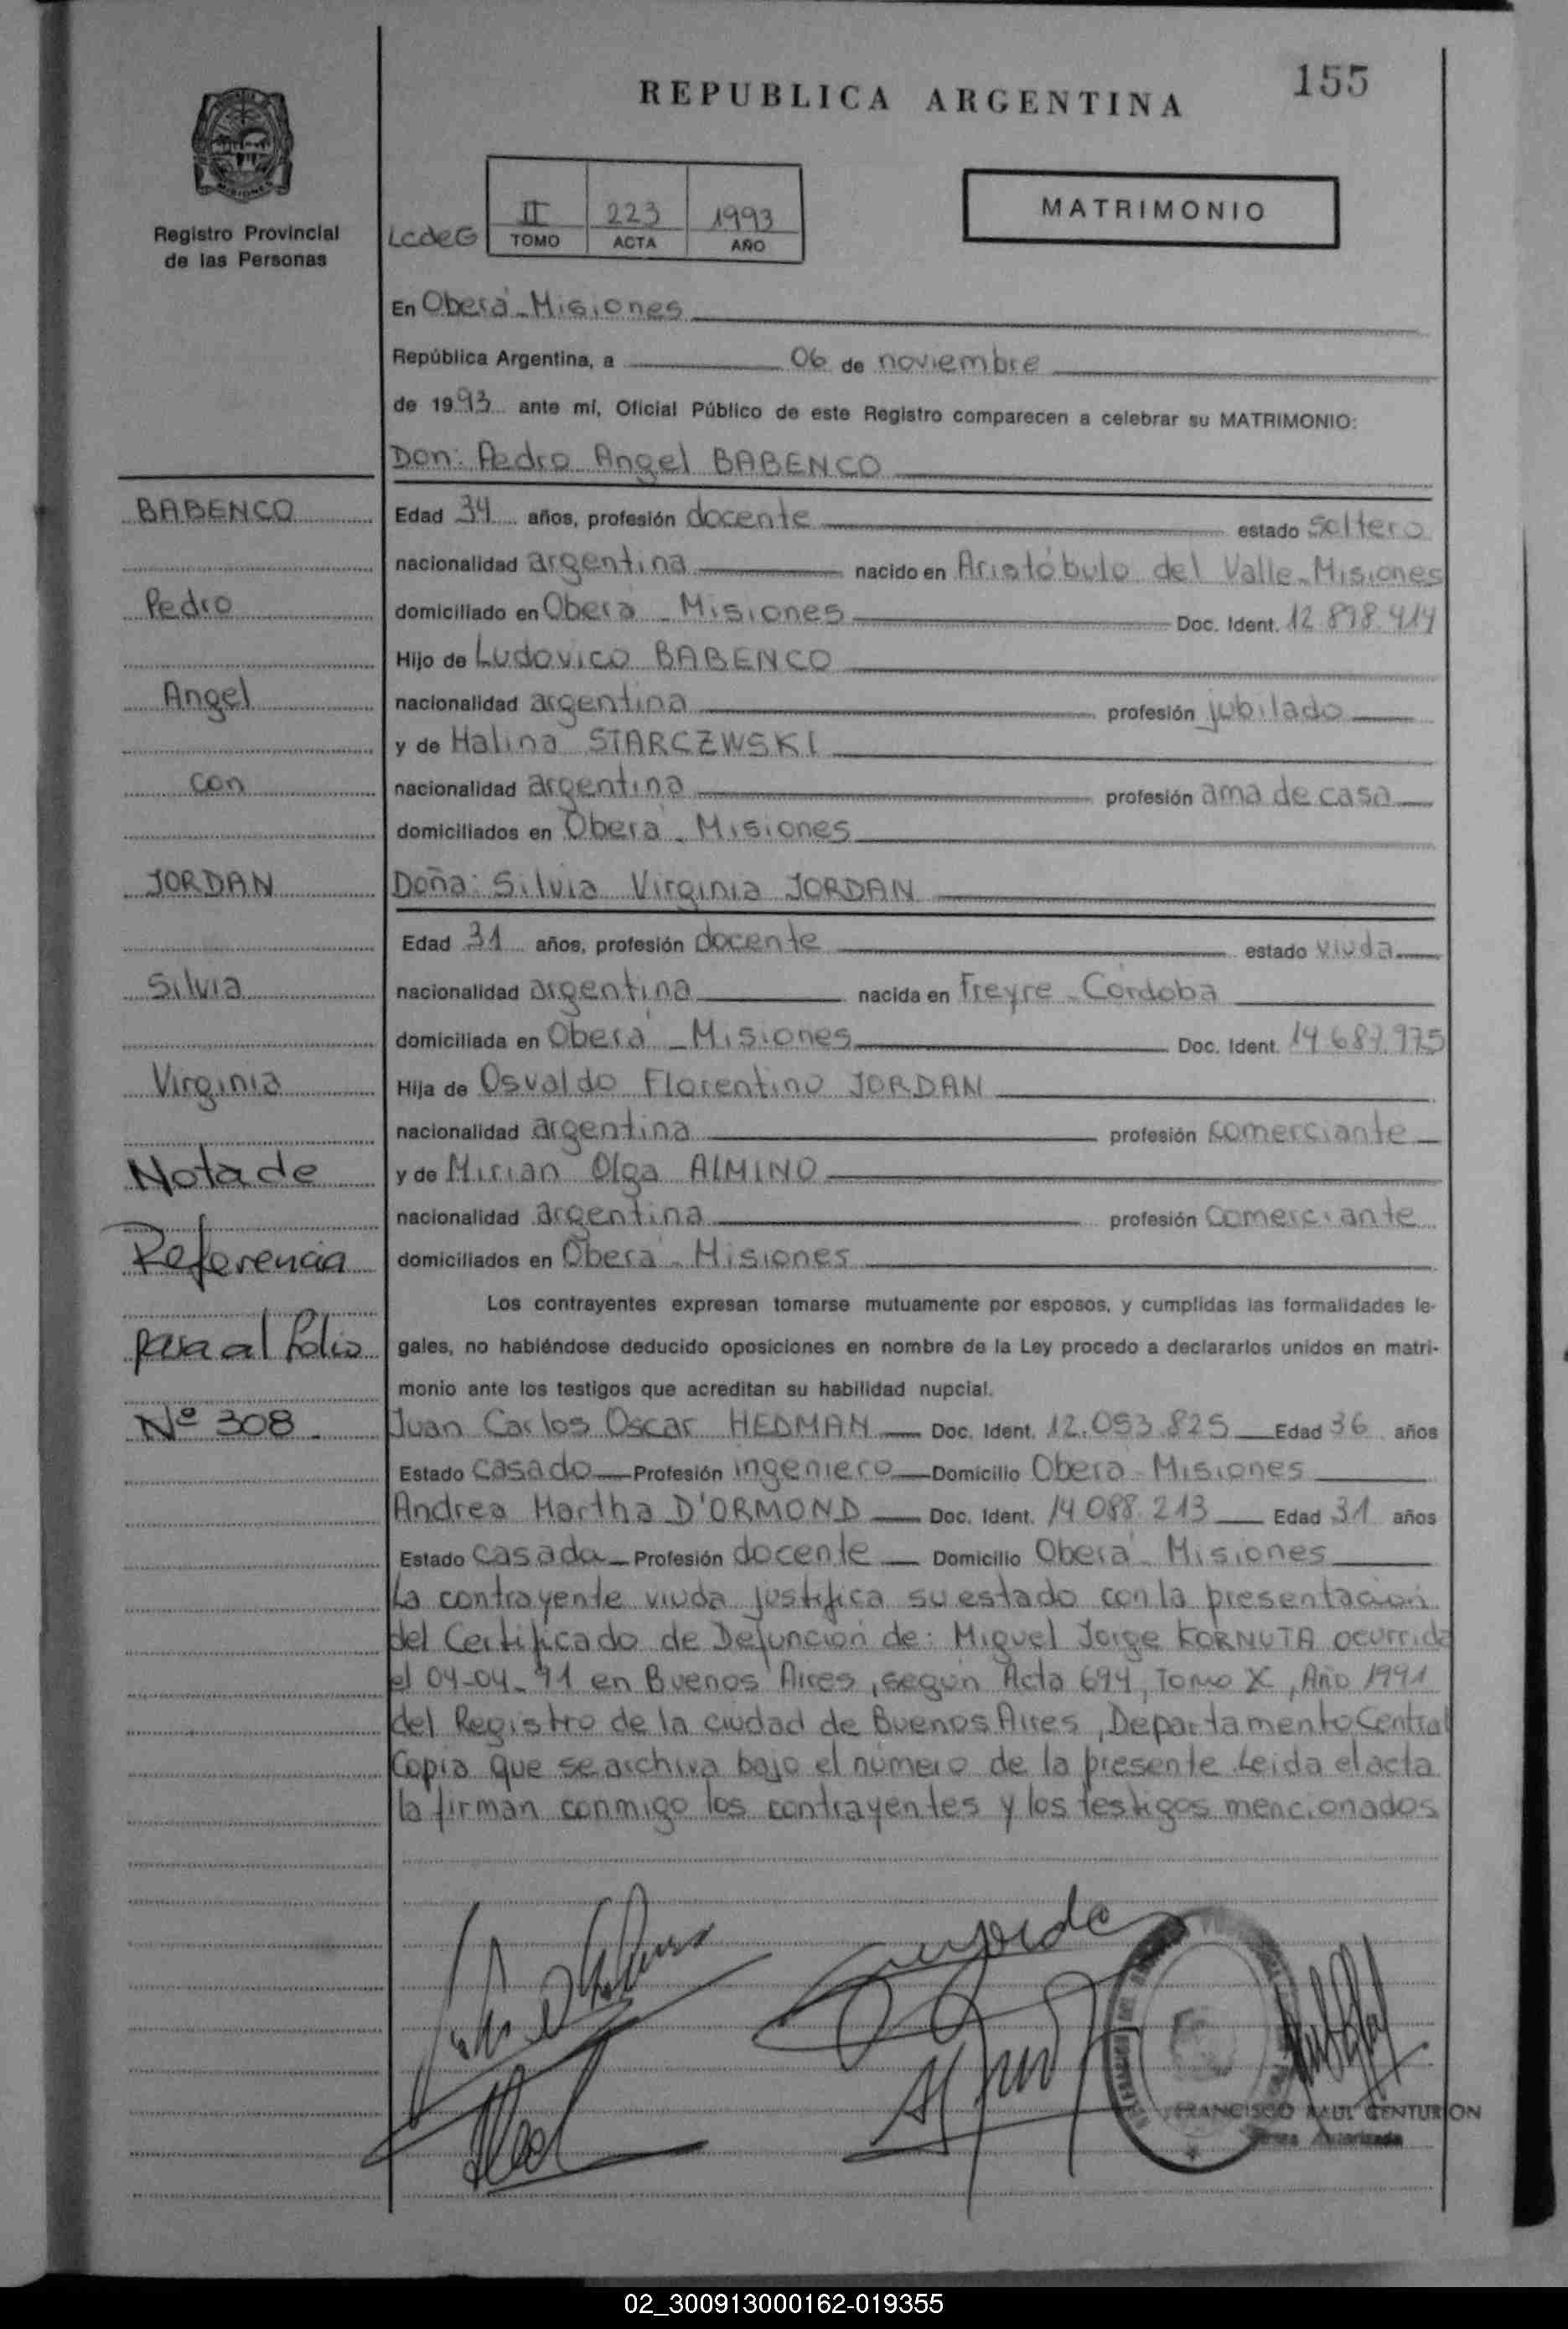 REPUBLICA ARGENTINA
155
MISIONES
Registro Provincial
de las Personas
LcdeG
II
223
1993
TOMO
ACTA
AÑO
MATRIMONIO
En Oberá - Misiones
República Argentina, a 06 de noviembre
de 1993 ante mí, Oficial Público de este Registro comparecen a celebrar su MATRIMONIO:
Don: Pedro Angel BABENCO
BABENCO
Edad 34 años, profesión docente estado soltero
nacionalidad argentina nacido en Aristóbulo del Valle - Misiones
Pedro
domiciliado en Oberá - Misiones Doc. Ident. 12.898.414
Hijo de Ludovico BABENCO
Angel
nacionalidad argentina profesión jubilado
y de Halina STARCZWSKI
con
nacionalidad argentina profesión ama de casa
domiciliados en Oberá - Misiones
JORDAN
Doña: Silvia Virginia JORDAN
Edad 31 años, profesión docente estado viuda
Silvia
nacionalidad argentina nacida en Freyre - Córdoba
domiciliada en Oberá - Misiones Doc. Ident. 14.687.975
Virginia
Hija de Osvaldo Florentino JORDAN
nacionalidad argentina profesión comerciante
Nota de
y de Mirian Olga ALMINO
nacionalidad argentina profesión comerciante
Referencia
domiciliados en Oberá - Misiones
Los contrayentes expresan tomarse mutuamente por esposos, y cumplidas las formalidades le-
para al folio
gales, no habiéndose deducido oposiciones en nombre de la Ley procedo a declararlos unidos en matri-
monio ante los testigos que acreditan su habilidad nupcial.
Nº 308.
Juan Carlos Oscar HEDMAN Doc. Ident. 12.053.825 Edad 36 años
Estado casado Profesión ingeniero Domicilio Oberá - Misiones
Andrea Martha D'ORMOND Doc. Ident. 14.088.213 Edad 31 años
Estado casada Profesión docente Domicilio Oberá - Misiones
La contrayente viuda justifica su estado con la presentación
del Certificado de Defunción de: Miguel Jorge KORNUTA ocurrida
el 04-04-91 en Buenos Aires, según Acta 694, Tomo X, Año 1991
del Registro de la ciudad de Buenos Aires, Departamento Central
Copia que se archiva bajo el número de la presente Leida el acta
la firman conmigo los contrayentes y los testigos mencionados
FRANCISCO RAUL CENTURION
02_300913000162-019355